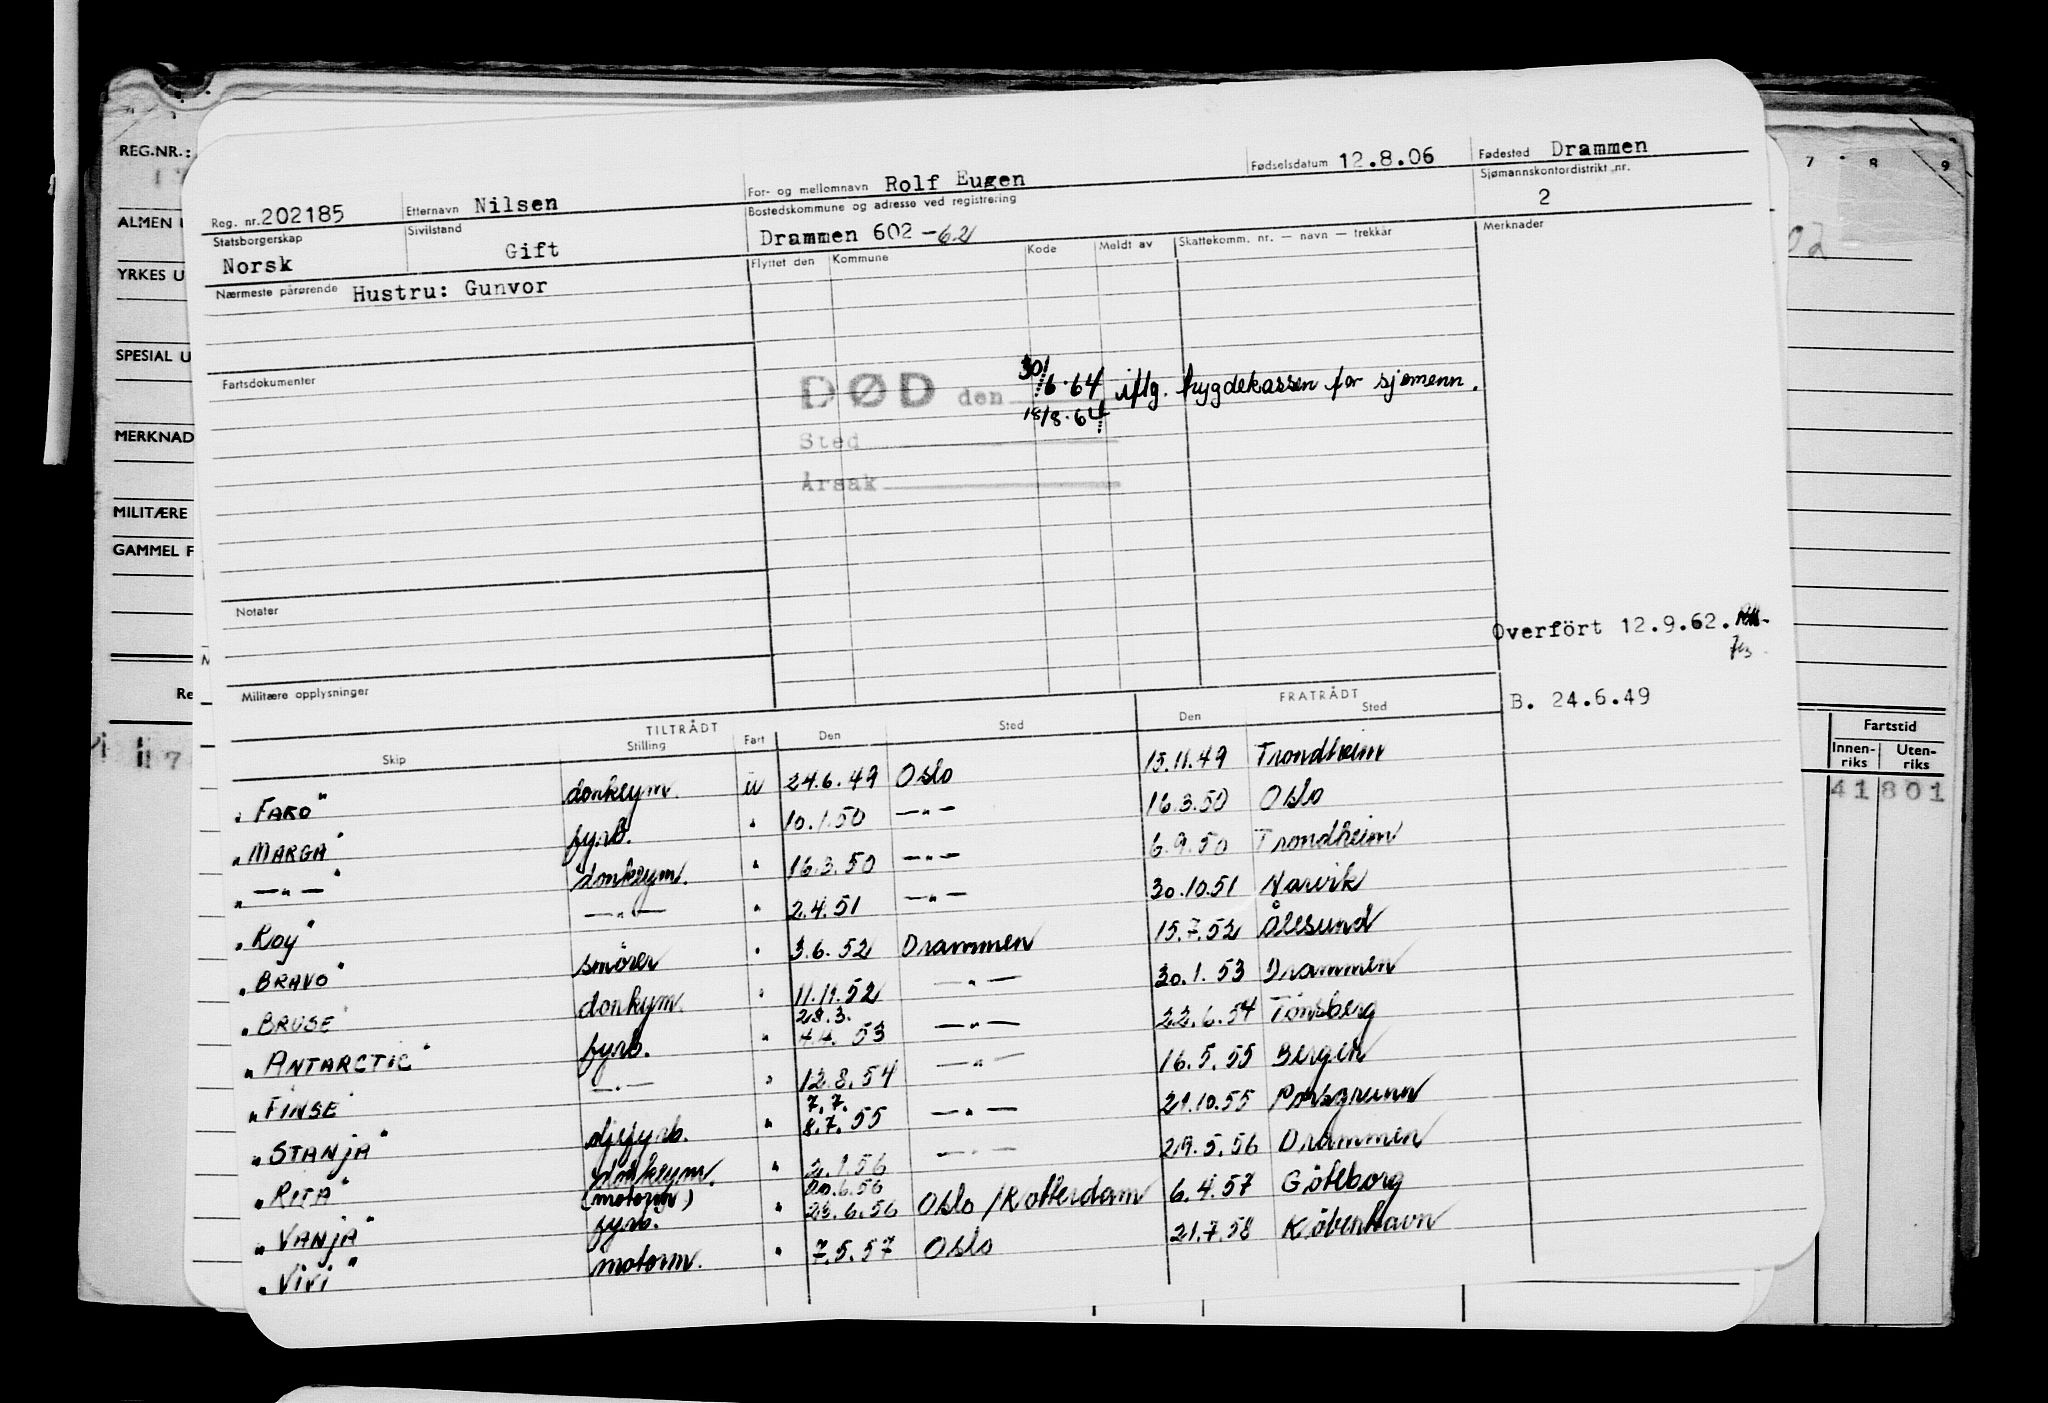 REG.NR.:
ALMEN U
YRKES U
SPESIAL U
MERKNAD
MILITÆRE
GAMMEL F
Re
7 8 9
02
Fartstid
Innen-riks Uten-riks
41801
Reg. nr. 202185 Etternavn Nilsen For- og mellomnavn Rolf Eugen Fødselsdatum 12.8.06 Fødested Drammen
Statsborgerskap Norsk Sivilstand Gift Bostedskommune og adresse ved registrering Drammen 602 -62 Sjømannskontordistrikt nr. 2
Nærmeste pårørende Hustru: Gunvor Flyttet den Kommune Kode Meldt av Skattekomm. nr. — navn — trekkår Merknader
Fartsdokumenter
DØD den 30/6-64 iflg. trygdekassen for sjømenn.
18/8-64
Sted
Årsak
Notater
Overfört 12.9.62.
Militære opplysninger
B. 24.6.49
TILTRÅDT FRATRÅDT
Skip Stilling Fart Den Sted Den Sted
"FARO" donkeym. u 24.6.49 Oslo 15.11.49 Trondheim
"MARGA" fyrb. " 10.1.50 —"— 16.3.50 Oslo
"—"—" donkeym. " 16.3.50 —"— 6.9.50 Trondheim
"ROY" —"— " 2.4.51 —"— 30.10.51 Narvik
"BRAVO" smörer " 3.6.52 Drammen 15.7.52 Ålesund
"BRUSE" donkym. " 11.11.52 —"— 30.1.53 Drammen
"ANTARCTIC" fyrb. " 28.3. 4.4. 53 —"— 22.6.54 Tönsberg
"FINSE" —"— " 12.8.54 —"— 16.5.55 Bergen
"STANJA" " 7.7. 8.7.55 —"— 29.10.55 Porsgrunn
"RITA" donkeym. " 2.1.56 —"— 29.5.56 Drammen
"VANJA" (motorm) fyrb. " 20.6.56 23.6.56 Oslo / Rotterdam 6.4.57 Göteborg
"VIVI" motorm. " 7.5.57 Oslo 21.7.58 Köbenhavn